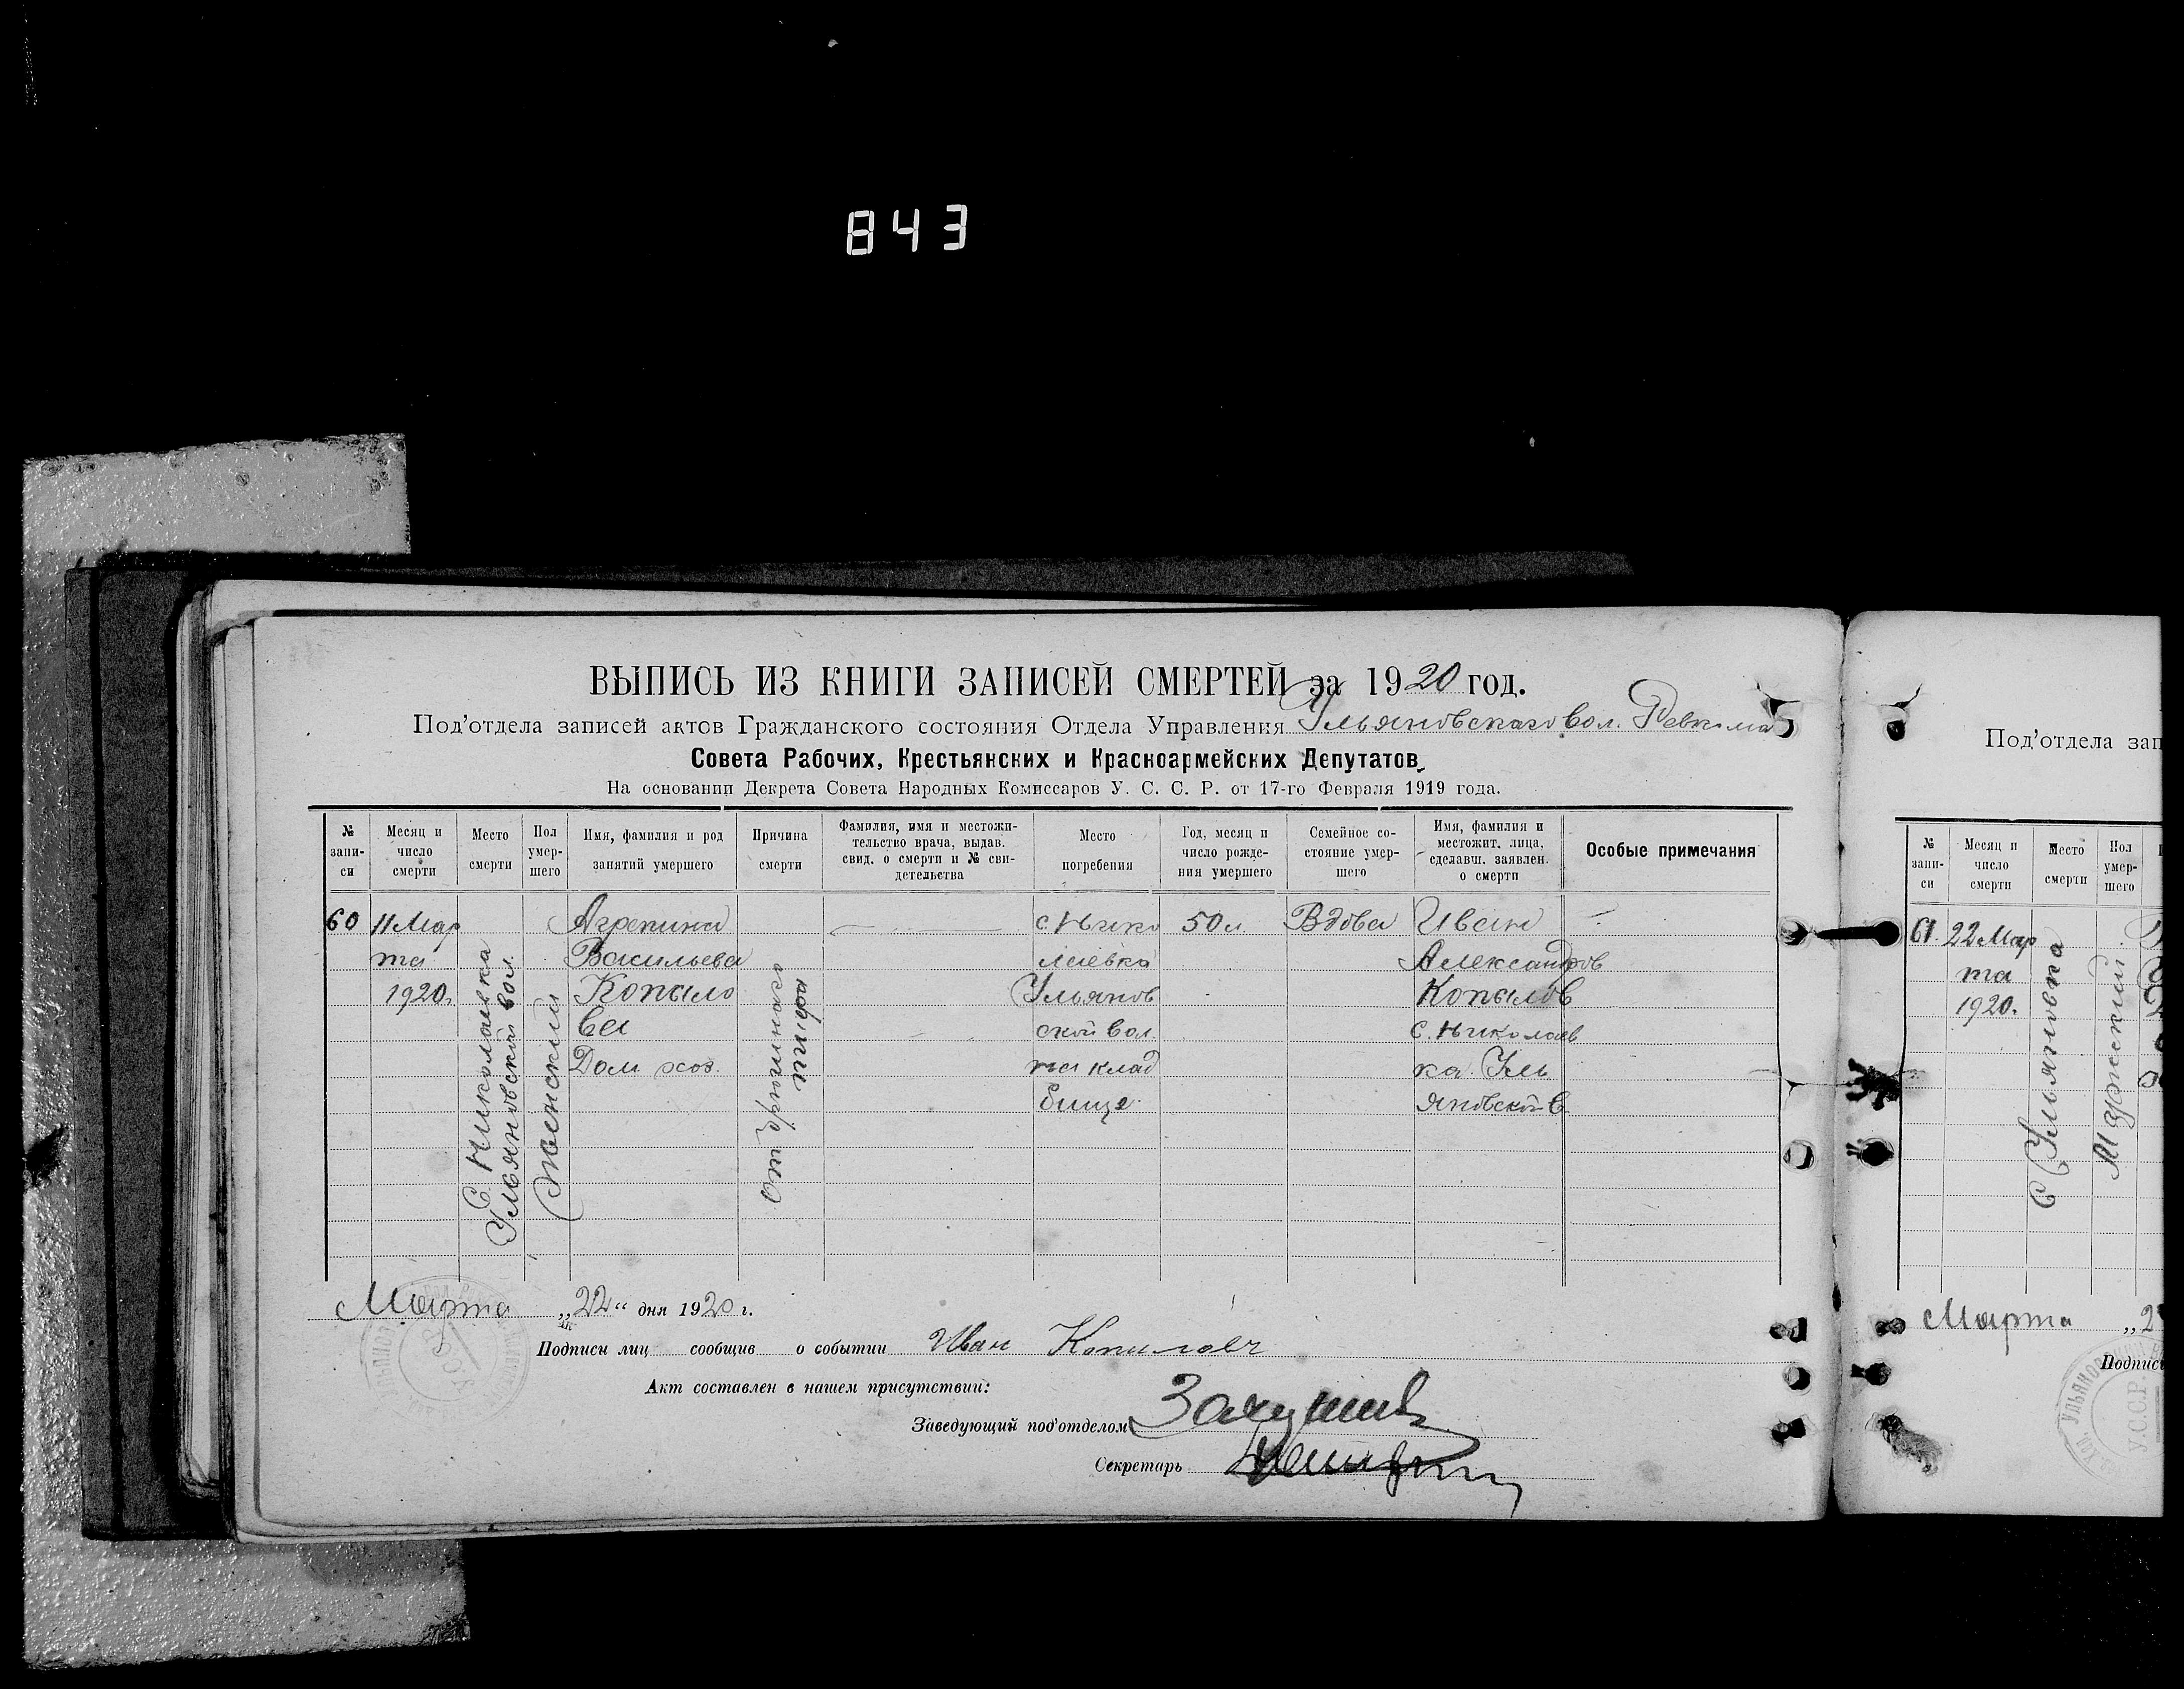 843
ВЫПИСЬ ИЗ КНИГИ ЗАПИСЕЙ СМЕРТЕЙ за 1920 год.
Под'отдела записей актов Гражданского состояния Отдела Управления Ульяновского вол. Ревкома
Совета Рабочих, Крестьянских и Красноармейских Депутатов,
На основании Декрета Совета Народных Комиссаров У. С. С. Р. от 17-го Февраля 1919 года.
№ запи-си
Месяц и число смерти
Место смерти
Пол умер-шего
Имя, фамилия и род занятий умершего
Причина смерти
Фамилия, имя и местожи-тельство врача, выдав. свид. о смерти и № сви-детельства
Место погребения
Год, месяц и число рожде-ния умершего
Семейное со-стояние умер-шего
Имя, фамилия и местожит. лица, сделавш. заявлен. о смерти
Особые примечания
60
11 Мар
та
1920.
С. Николаевка
Ульяновской вол.
Женский
Агрепина
Васильева
Копыло
ва
Дом хоз.
от
тифа
с. Нико
лаевка
Ульянов
ской вол.
на клад
бище
50 л
Вдова
Иван
Александров
Копылов
с. Николаев
ка Уль
яновской в.
Марта „22“ дня 1920 г.
Подписи лиц сообщив о событии Иван Копылов
Акт составлен в нашем присутствии:
Заведующий под'отделом
Секретарь
Под'отдела зап
№ запи-си
Месяц и число смерти
Место смерти
Пол умер-шего
61.
22 Мар
та
1920.
С Ульяновка
Мужский
Марта „2
Подпис
У.С.С.Р.